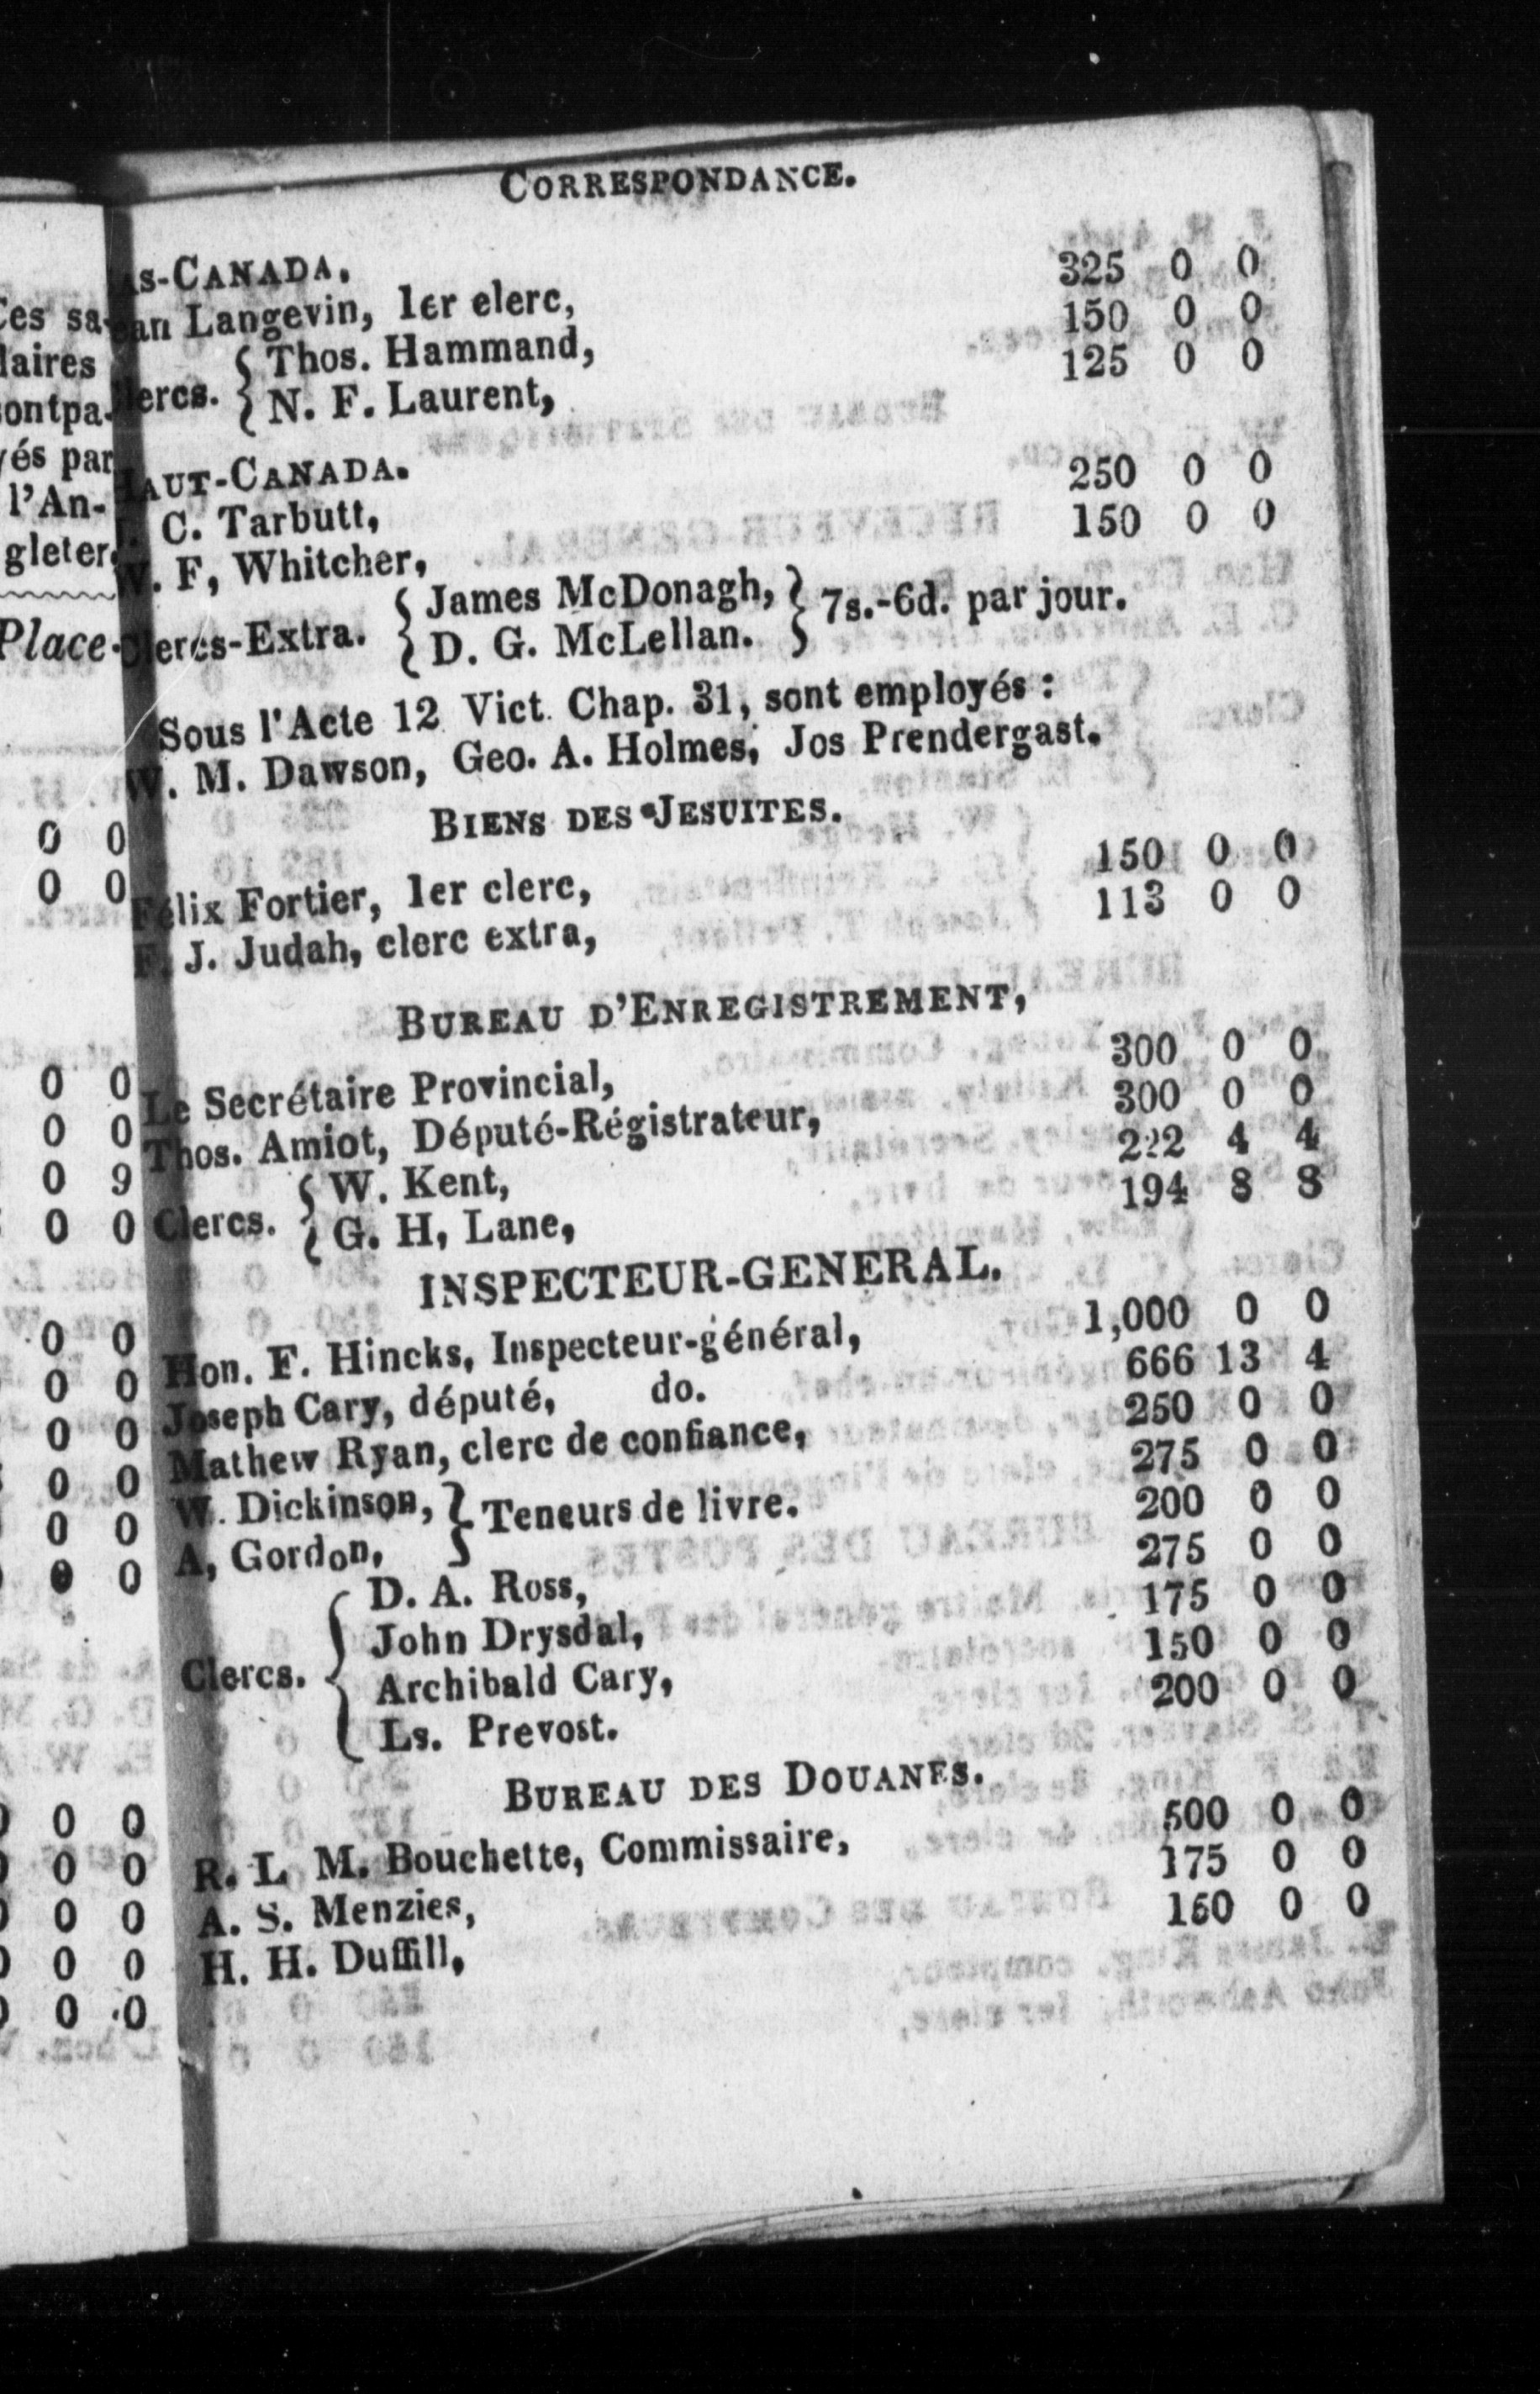 CORRESPONDANCE.
AS-CANADA.
ean Langevin, 1er elerc, 325 0 0
lercs. { Thos. Hammand, 150 0 0
{ N. F. Laurent, 125 0 0
HAUT-CANADA.
. C. Tarbutt, 250 0 0
W. F, Whitcher, 150 0 0
Clercs-Extra. { James McDonagh, } 7s.-6d. par jour.
{ D. G. McLellan. }
Sous l'Acte 12 Vict. Chap. 31, sont employés :
W. M. Dawson, Geo. A. Holmes, Jos Prendergast.
BIENS DES JESUITES.
Félix Fortier, 1er clerc, 150 0 0
F. J. Judah, clerc extra, 113 0 0
BUREAU D'ENREGISTREMENT,
Le Secrétaire Provincial, 300 0 0
Thos. Amiot, Député-Régistrateur, 300 0 0
Clercs. { W. Kent, 222 4 4
{ G. H, Lane, 194 8 8
INSPECTEUR-GENERAL.
Hon. F. Hincks, Inspecteur-général, 1,000 0 0
Joseph Cary, député, do. 666 13 4
Mathew Ryan, clerc de confiance, 250 0 0
W. Dickinson, } Teneurs de livre. 275 0 0
A, Gordon, } 200 0 0
Clercs. { D. A. Ross, 275 0 0
John Drysdal, 175 0 0
Archibald Cary, 150 0 0
Ls. Prevost. 200 0 0
BUREAU DES DOUANES.
R. L M. Bouchette, Commissaire, 500 0 0
A. S. Menzies, 175 0 0
H. H. Duffill, 150 0 0
Ces sa-
laires
sontpa-
yés par
l'An-
gleter.
Place-
0 0
0 0
0 0
0 0
0 9
0 0
0 0
0 0
0 0
0 0
0 0
0 0
0 0
0 0
0 0
0 0
0 0